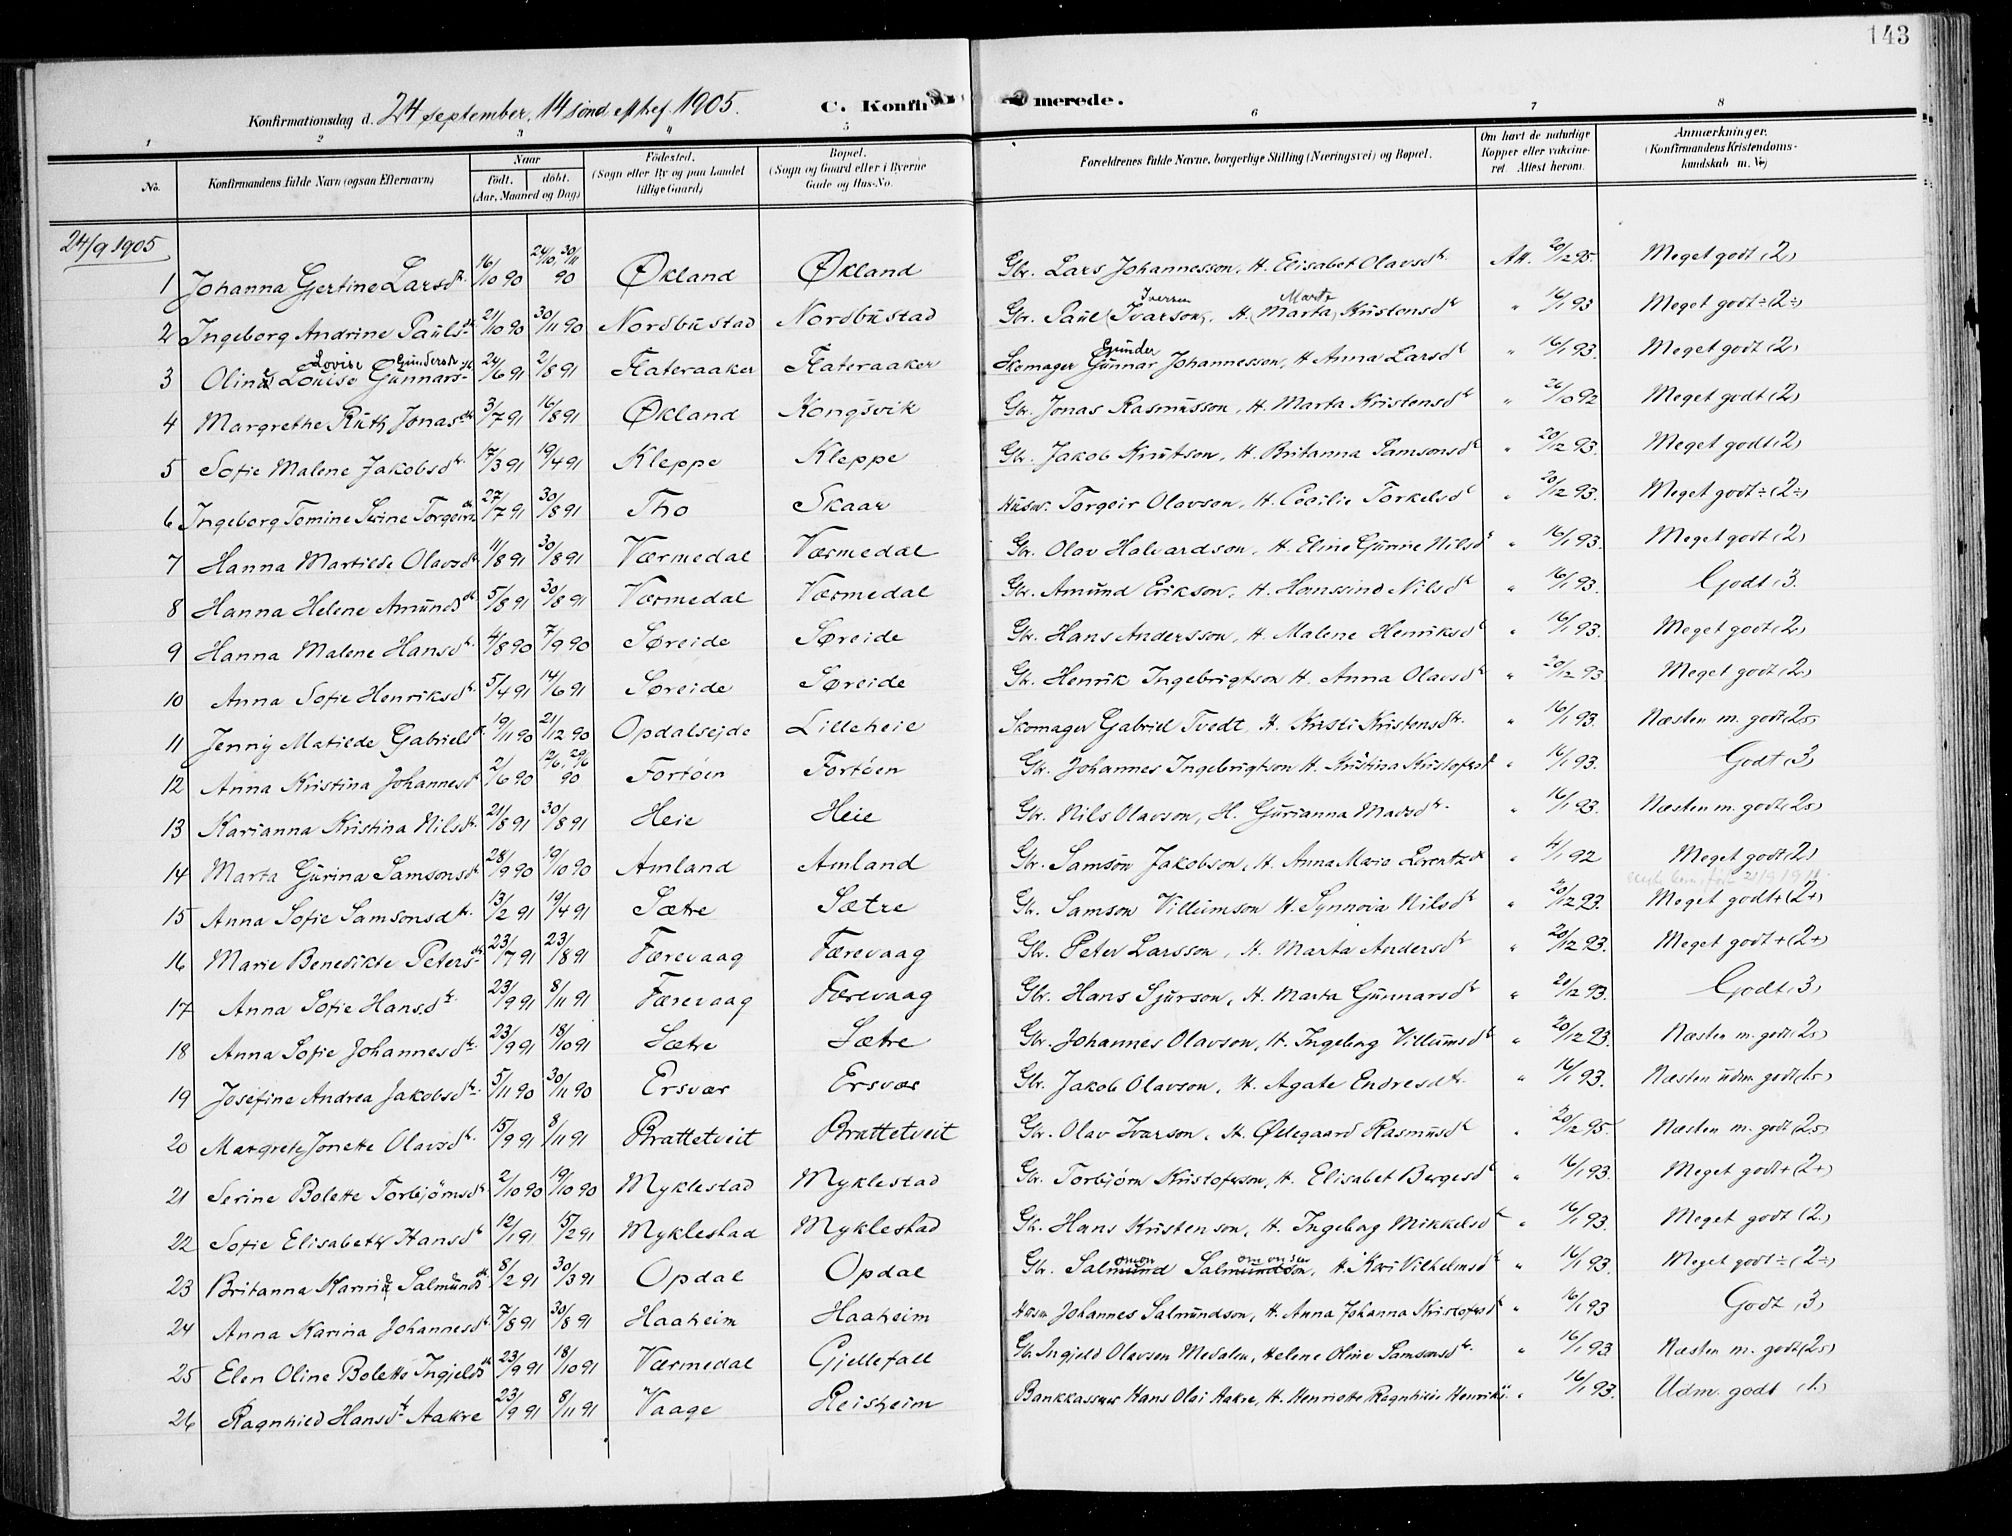 143
Konfirmationsdag d. 24 september, 14 sönd eft. tref. 1905. C. Konfirmerede.
1 2 3 4 5 6 7 8
No. Konfirmandens fulde Navn (ogsaa Efternavn) Naar födt. döbt. (Aar, Maaned og Dag) Födested. (Sogn eller By og paa Landet tillige Gaard) Bopæl. (Sogn og Gaard eller i Byerne Gade og Hus-No. Forældrenes fulde Navne, borgerlige Stilling (Næringsvei) og Bopæl. Om havt de naturlige Kopper eller vakcineret. Attest herom. Anmærkninger. (Konfirmandens Kristendomskundskab m. v.)
24/9 1905
1 Johanna Gjertine Larsdtr. 16/10 90 24/10, 30/11 90 Økland Økland Gbr. Lars Johannesson, H. Elisabet Olavsdtr Att. 20/12 95. Meget godt (2)
2 Ingeborg Andrine Paulsdtr 21/10 90 30/11 90 Nordbustad Nordbustad Gbr. Paul (Ivarson) Iversen, H. (Marta) Marte Kristensdtr " 16/1 93 Meget godt ÷ (2÷)
3 Oline Louise Lovise Gunnarsdtr Gundersdtr 24/6 91 2/8 91 Flateraaker Flateraaker Skomager Gunnar Gunder Johannesson, H Anna Larsdtr " 16/1 93. Meget godt (2)
4 Margrethe Ruth Jonasdtr 3/7 91 16/8 91 Økland Kongsvik Gbr. Jonas Rasmusson, H. Marta Kristensdtr " 26/10 92 Meget godt (2)
5 Sofie Malene Jakobsdtr. 17/3 91 19/4 91 Kleppe Kleppe Gbr. Jakob Knutson, H. Britanna Samsonsdtr " 20/12 93. Meget godt (2)
6 Ingeborg Tomine Serine Torgeirsdtr 27/7 91 30/8 91 Tho Skaar Husm. Torgeir Olavson, H. Cecilie Torkelsdtr " 20/12 93. Meget godt ÷ (2÷)
7 Hanna Martilde Olavsdtr 11/8 91 30/8 91 Værmedal Værmedal Gbr. Olav Halvardson, H. Eline Gurine Nilsdtr " 16/1 93. Meget godt (2)
8 Hanna Helene Amundsdtr 5/8 91 30/8 91 Værmedal Værmedal Gbr. Amund Erikson, H. Hanssine Nilsdtr " 16/1 93. Godt (3.
9 Hanna Malene Hansdtr. 4/8 90 7/9 90 Søreide Søreide Gbr. Hans Andersson, H. Malene Henriksdtr " 16/1 93. Meget godt (2)
10 Anna Sofie Henriksdtr. 5/4 91 14/6 91 Søreide Søreide Gbr. Henrik Ingebrigtson H. Anna Olavsdtr " 20/12 93 Meget godt (2)
11 Jenny Matilde Gabrielsdtr 19/11 90 21/12 90 Opdalsejde Lilleheie Skomager Gabriel Tvedt, H. Kristi Kristensdtr. " 16/1 93. Næsten m. godt (2,5)
12 Anna Kristina Johannesdtr 2/6 90 12/6, 29/6 90 Fortøen Fortøen Gbr. Johannes Ingebrigtson H. Kristina Kristofersdtr " 16/1 93. Godt (3)
13 Karianna Kristina Nilsdtr. 21/8 91 30/8 91 Heie Heie Gbr. Nils Olavson, H. Gurianna Madsdtr. " 16/1 93. Næsten m. godt (2,5)
14 Marta Gurina Samsonsdtr. 28/9 90 19/10 90 Amland Amland Gbr. Samson Jakobson, H. Anna Maria Lorentzdtr " 4/1 92 Meget godt (2)
15 Anna Sofie Samsonsdtr. 13/2 91 19/4 91 Sætre Sætre Gbr. Samson Villumson H. Synnøva Nilsdtr " 20/12 93. Meget godt + (2+)
16 Marie Benedikte Petersdtr 23/7 91 23/8 91 Færevaag Færevaag Gbr. Peter Larsson, H. Marta Andersdtr " 20/12 93. Meget godt + (2+)
17 Anna Sofie Hansdtr. 23/9 91 8/11 91 Færevaag Færevaag Gbr. Hans Sjurson, H. Marta Gunnarsdtr " 20/12 93. Godt (3)
18 Anna Sofie Johannesdtr. 23/9 91 18/10 91 Sætre Sætre Gbr. Johannes Olavson, H. Ingeborg Villumsdtr " 20/12 93. Næsten m. godt (2,5)
19 Josefine Andrea Jakobsdtr. 5/11 90 30/11 90 Ersvær Ersvær Gbr. Jakob Olavson, H. Agate Endresdtr. " 16/1 93. Næsten udm. godt (1,5)
20 Margrete Jonette Olavsdtr. 15/9 91 8/11 91 Brattetveit Brattetveit Gbr. Olav Ivarson, H. Ødegaard Rasmusdtr " 20/12 95. Næsten m. godt (2,5)
21 Serine Bolette Torbjørnsdtr 2/10 90 19/10 90 Myklestad Myklestad Gbr. Torbjørn Kristoferson, H. Elisabet Bergesdtr " 16/1 93. Meget godt + (2+)
22 Sofie Elisabeth Hansdtr 12/1 91. 15/2 91 Myklestad Myklestad Gbr. Hans Kristenson, H. Ingeborg Mikkelsdtr " 16/1 93. Meget godt (2.)
23 Britanna Karine Salmundsdtr 8/2 91 30/3 91 Opdal Opdal Gbr. Salmund omon Salmundson omonsen, H. Kari Vilhelmsdtr " 16/1 93. Meget godt ÷ (2÷)
24 Anna Karina Johannesdtr. 7/8 91 30/8 91 Haaheim Haaheim Husm Johannes Salmundson, H. Anna Johanna Kristofersdtr " 16/1 93 Godt (3)
25 Elen Oline Bolette Ingjeldsdtr 23/9 91 18/10 91 Værmedal Gjellefall Gbr. Ingjeld Olavsen Medalen, Helene Oline Samsonsdtr. " 16/1 93 Næsten m. godt (2,5)
26 Ragnhild Hansdtr Aakre 23/9 91 8/11 91 Vaage Reisheim Bankkasserer Hans Olai Aakre, H. Henriette Ragnhilde " 16/1 93. Udm. godt (1.)